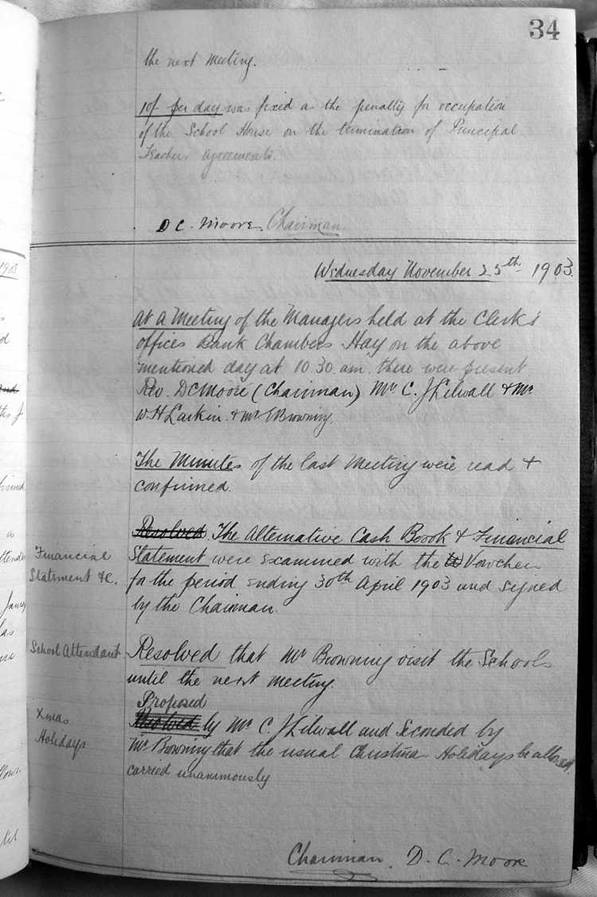 34
the next meeting.
10/- per day was fixed as the penalty for occupation
of the School House on the termination of Principal
Teachers agreements.
D C. Moore Chairman
Wednesday November 25th 1903.
At a Meeting of the Managers held at the Clerk's
offices Bank Chambers Hay on the above
mentioned day at 10.30 am there were present
Rev. D C Moore (Chairman) Mr C. J Lilwall & Mr
W H Larkin & Mr Browning.
The Minutes of the last Meeting were read +
confirmed.
Resolved The Alternative Cash Book & Financial
Financial
Statement &c.
Statement were examined with the Voucher
for the period ending 30th April 1903 and signed
by the Chairman.
School Attendant
Resolved that Mr Browning visit the Schools
until the next meeting.
Xmas
Holidays
Proposed
Resolved by Mr C. J Lilwall and Seconded by
Mr Browning that the usual Christmas Holidays be allowed
carried unanimously
Chairman. D. C. Moore